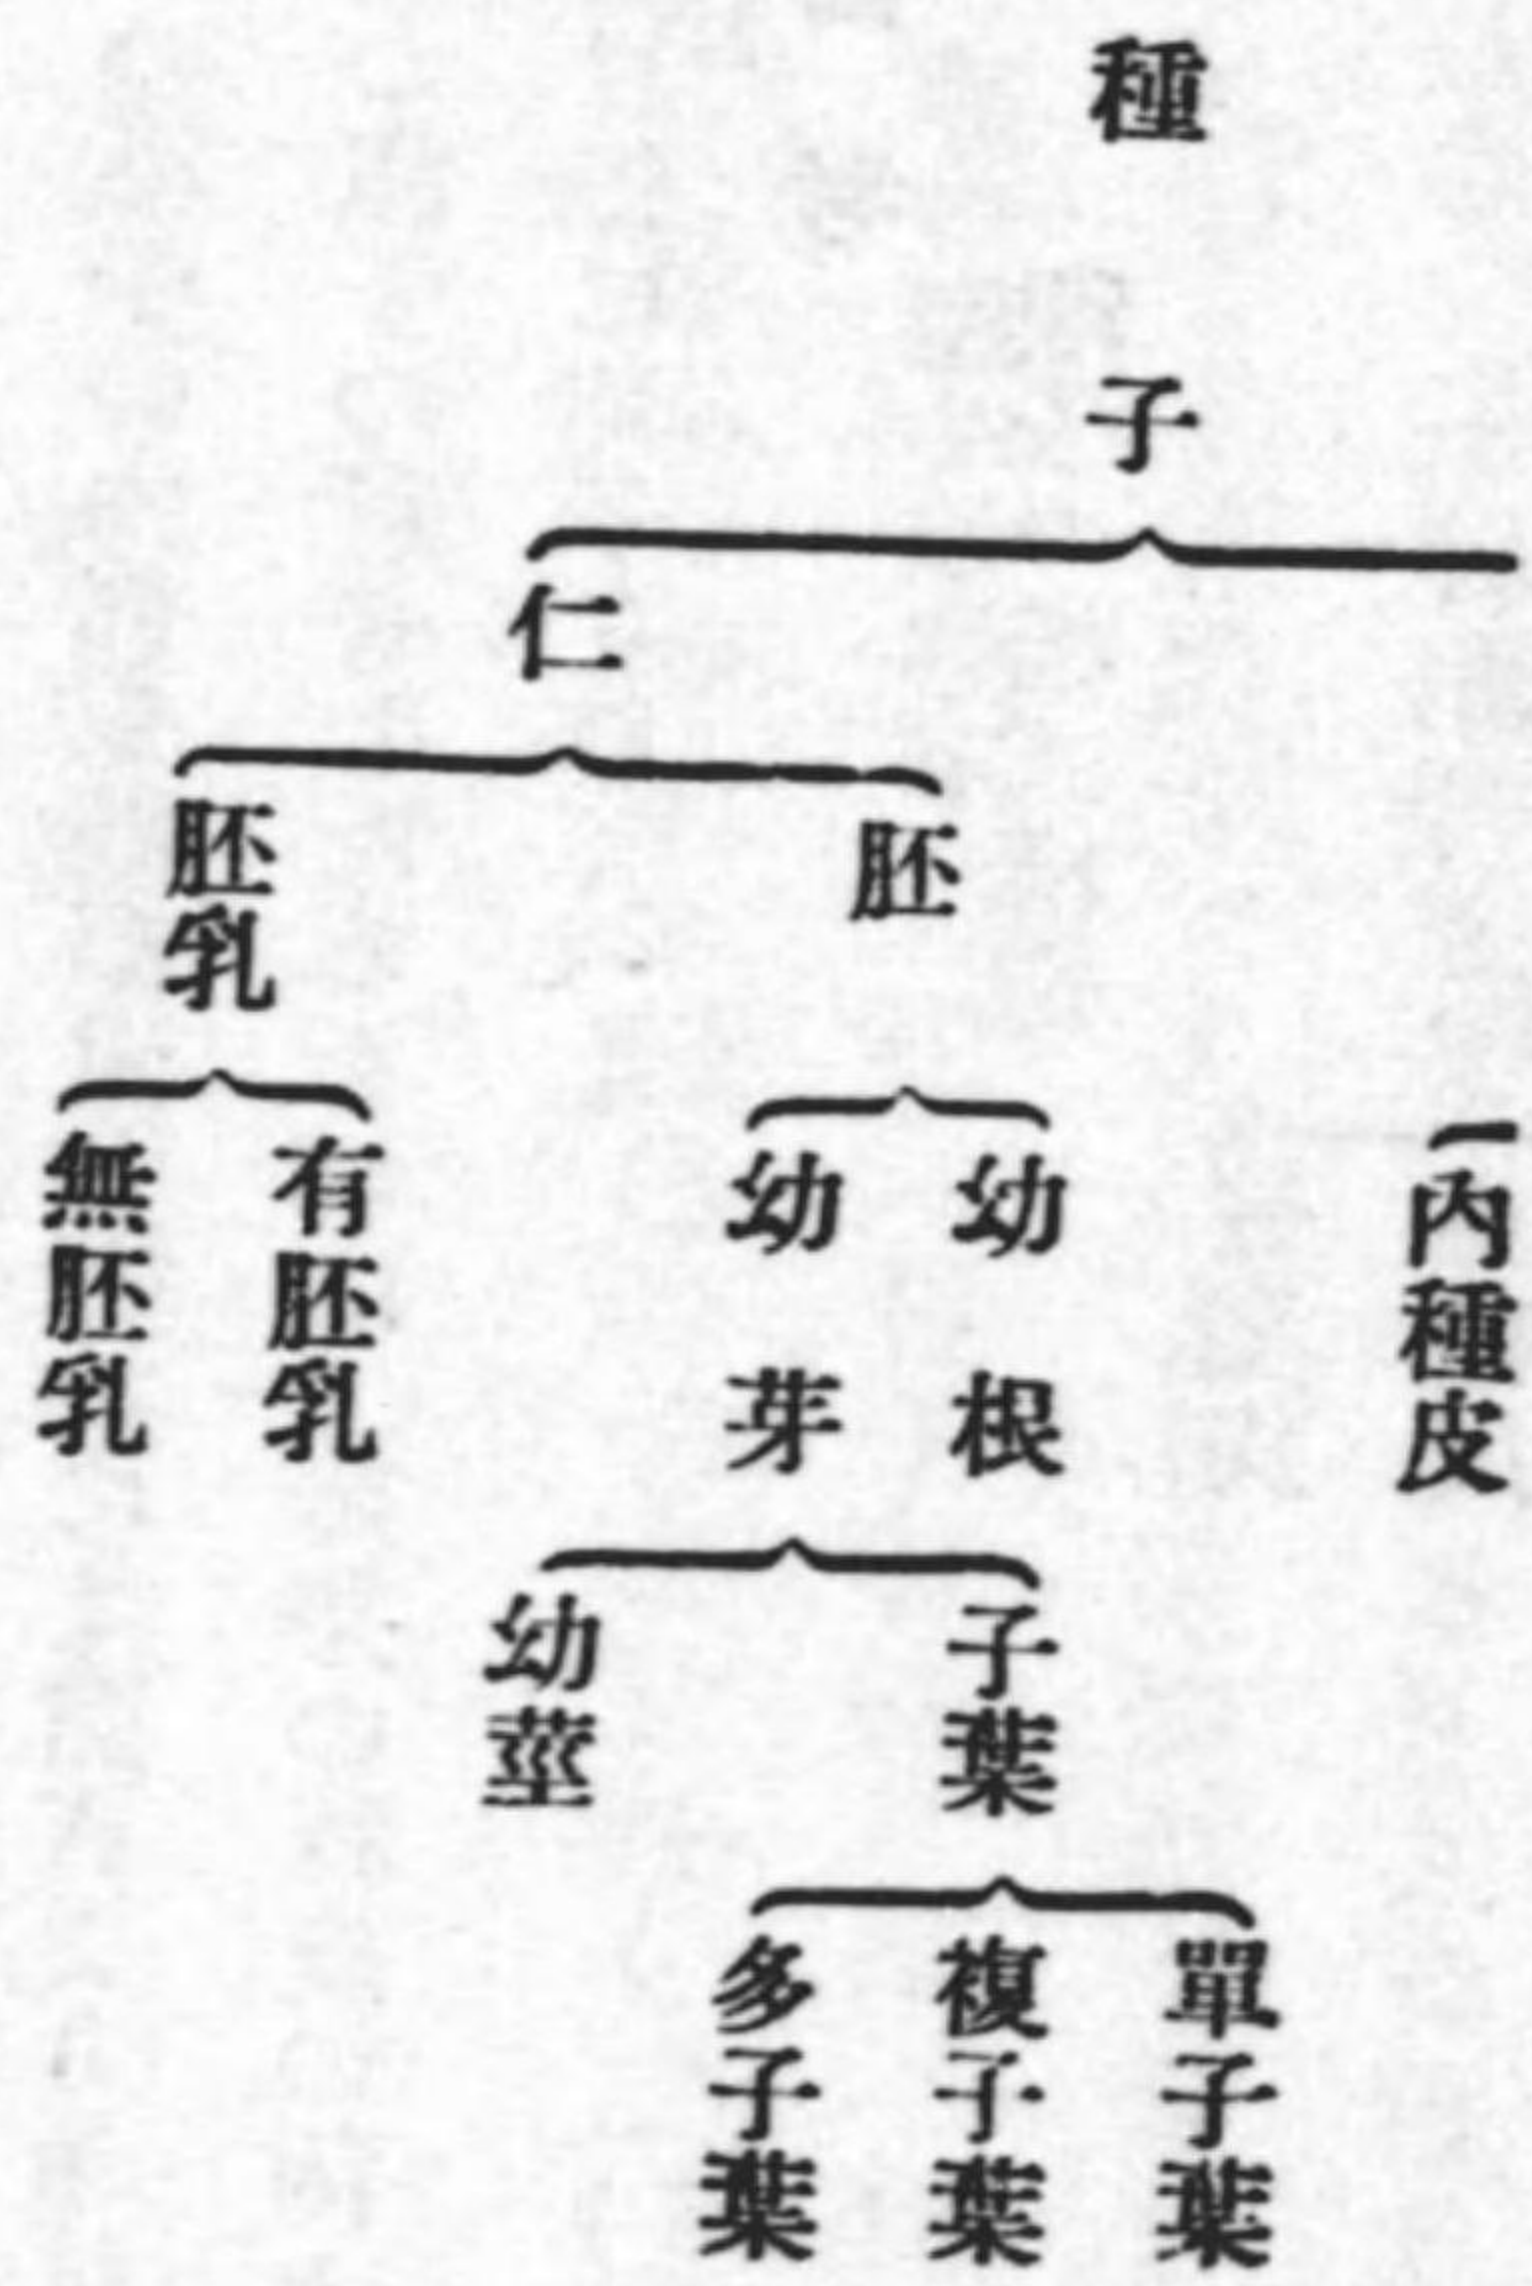 種子
內種皮
仁
胚
幼根
幼芽
子葉
單子葉
複子葉
多子葉
幼莖
胚乳
有胚乳
無胚乳